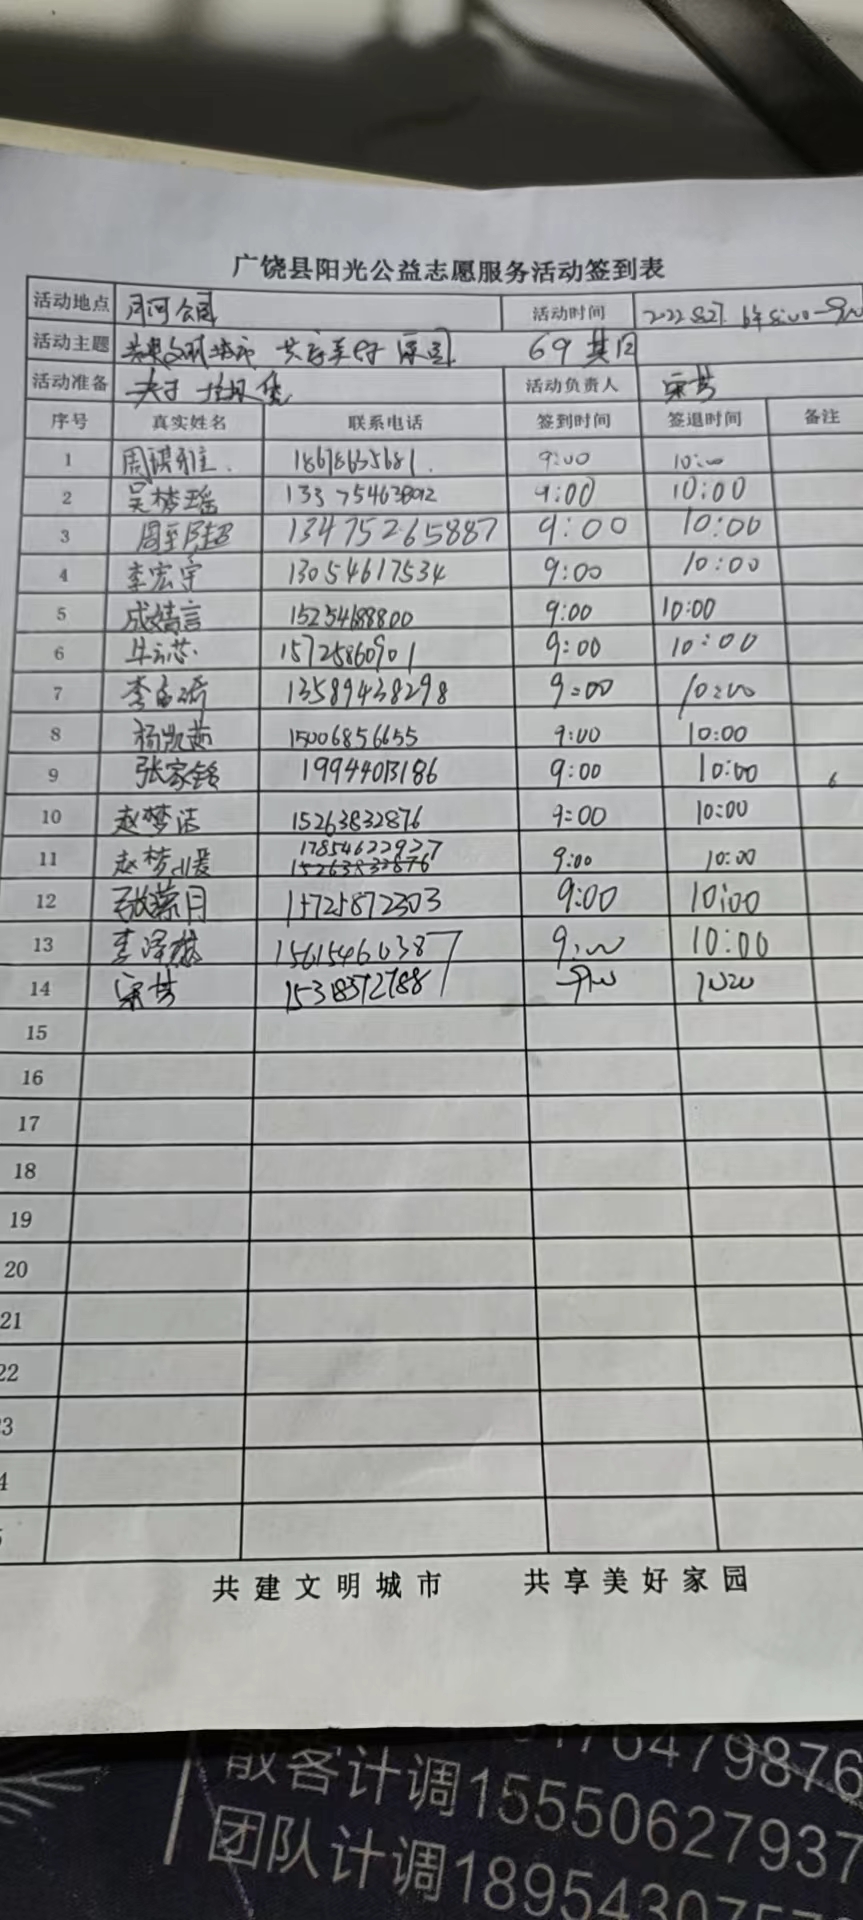 广饶县阳光公益志愿服务活动签到表
活动地点 月河公园 活动时间
活动主题 共建文明城市 共享美好家园 69
活动准备 夹子 垃圾袋 活动负责人 宋芳
序号 真实姓名 联系电话 签到时间 签退时间 备注
1 18678635681. 9:00 10:00
2 吴梦瑶 9:00 10:00
3 13475265887 9:00 10:00
4 李宏宇 13054617534 9:00 10:00
5 成婧言 15254688800 9:00 10:00
6 15725860901 9:00 10:00
7 13589438298 9:00 10:00
8 杨凯茹 15006856655 9:00 10:00
9 张家铭 19944013186 9:00 10:00
10 赵梦洁 15263832876 9:00 10:00
11 赵梦媛 17854622927 9:00 10:00
15263832876
12 15725872303 9:00 10:00
13 15615460387 9:00 10:00
14 宋芳 15318372788
15
16
17
18
19
20
21
22
23
4
共建文明城市 共享美好家园
散客计调15550627937
团队计调189543075